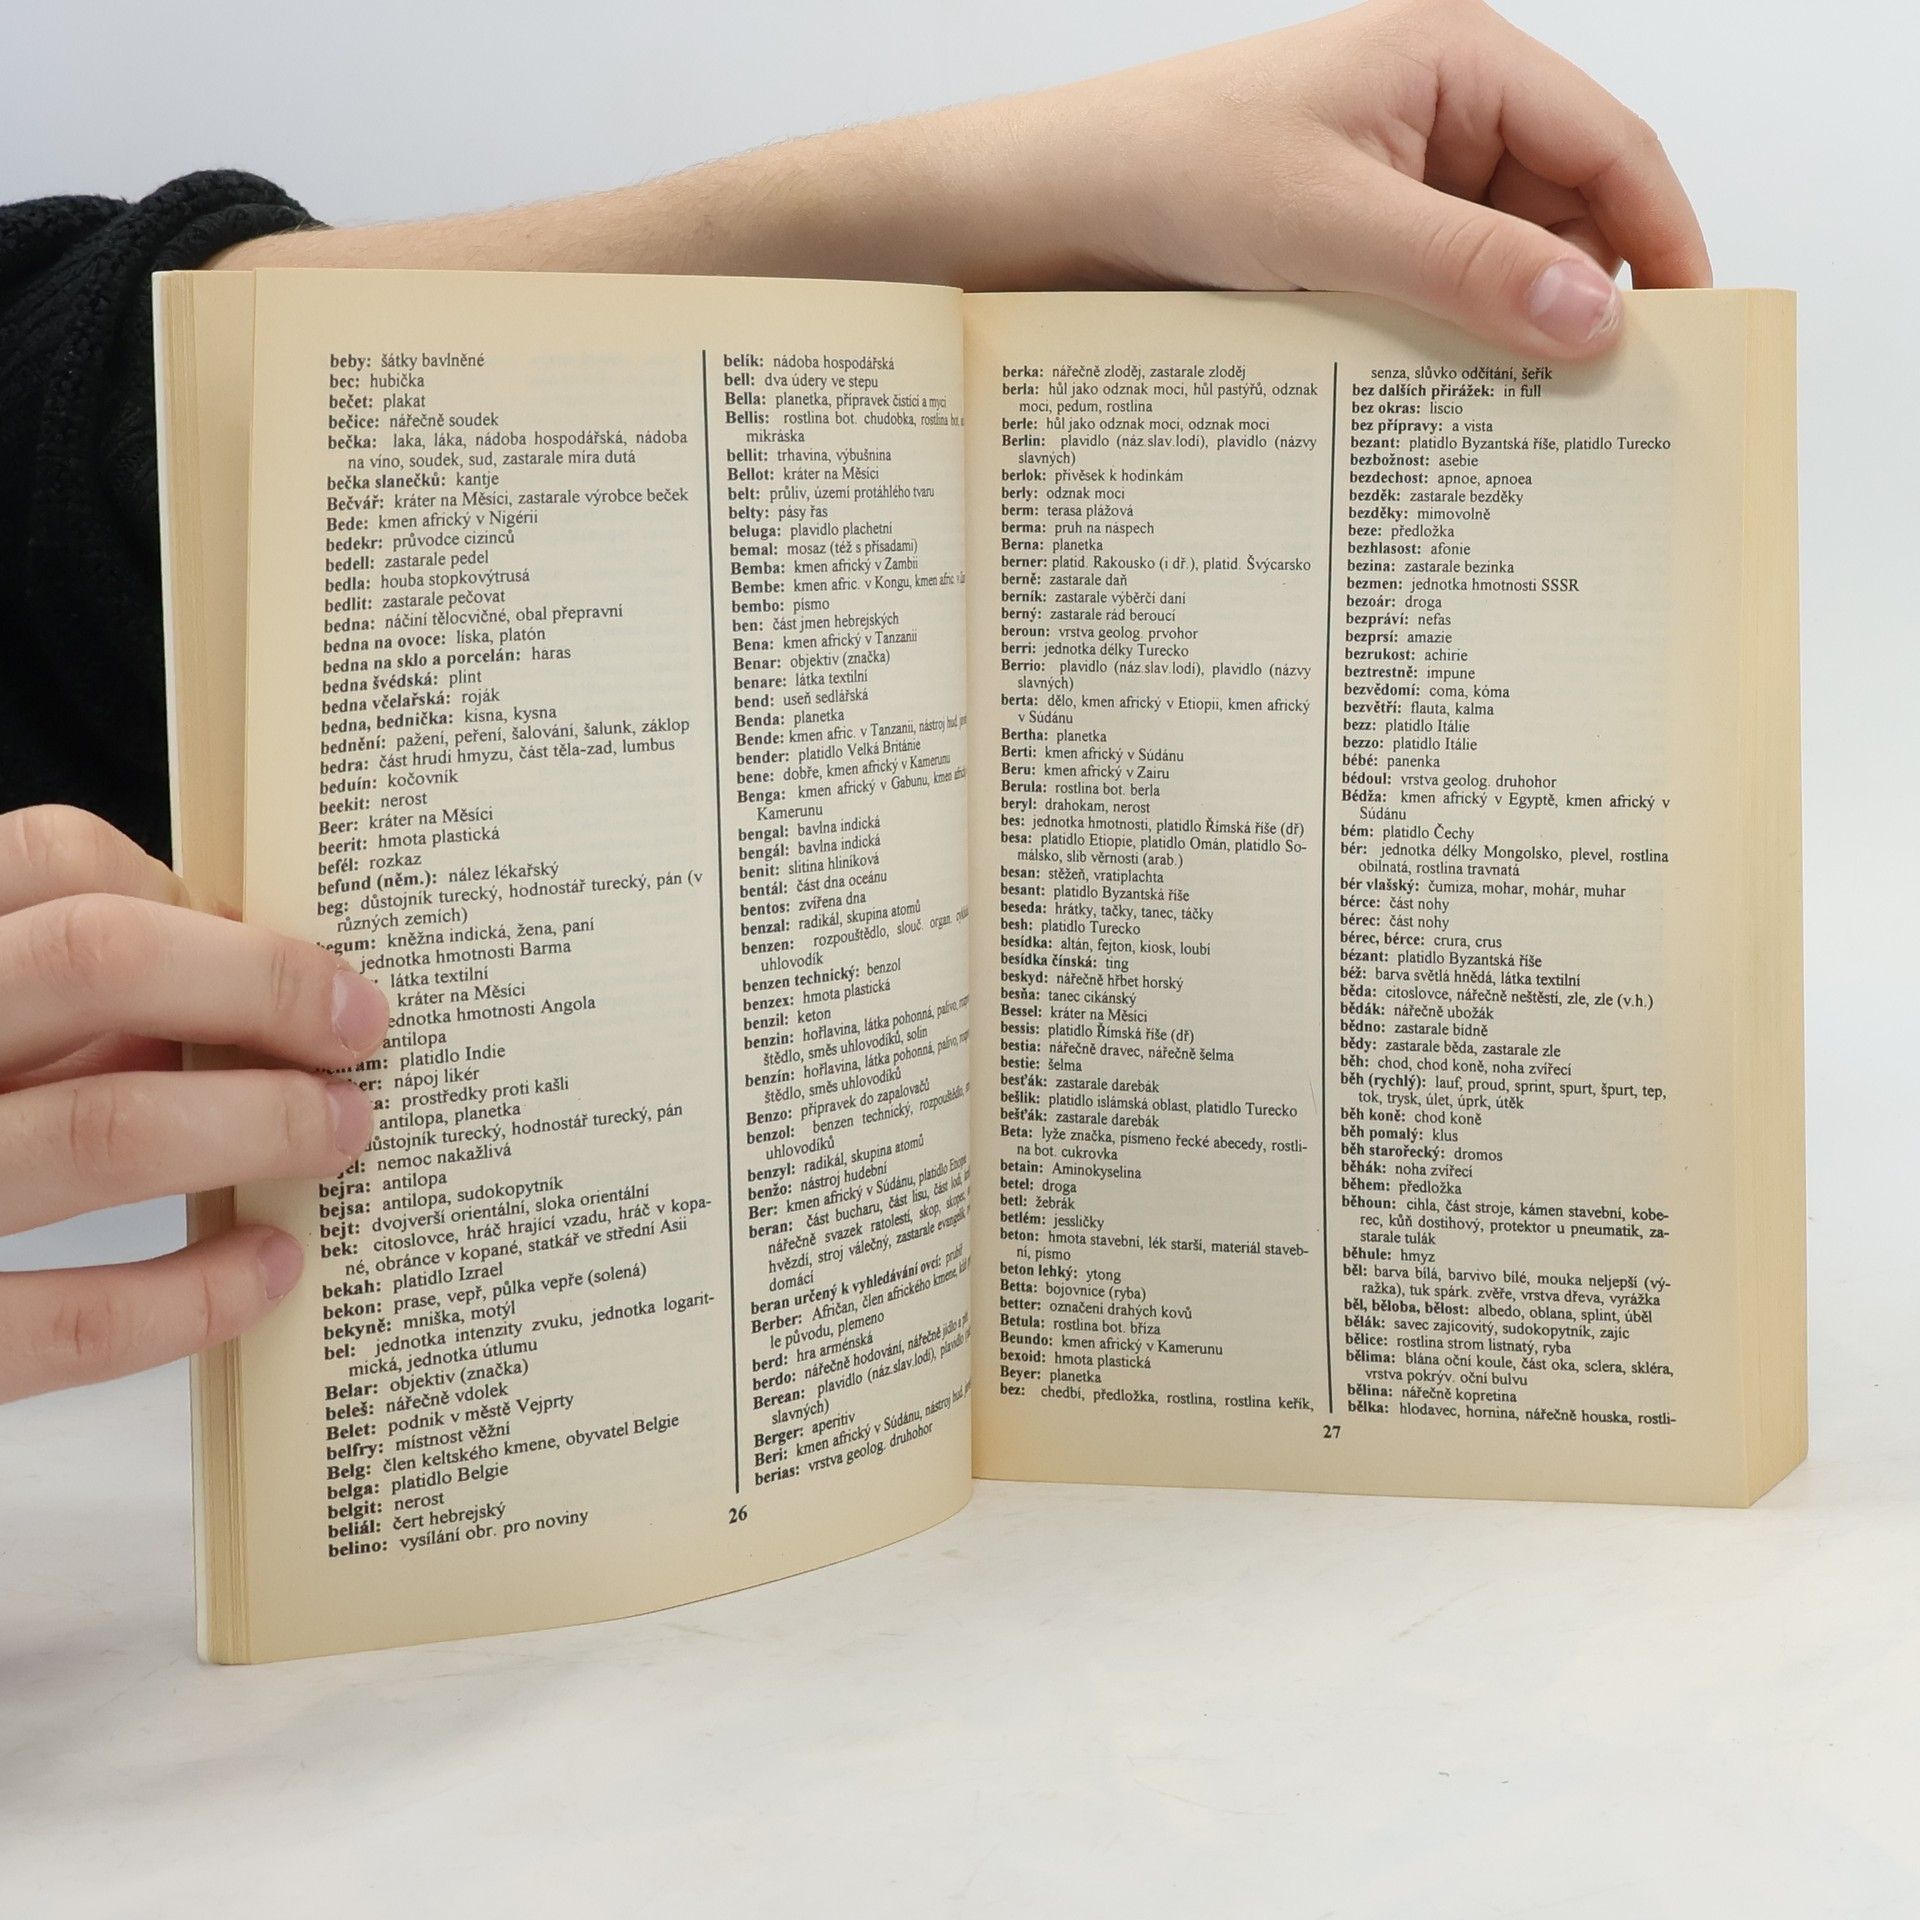 beby: šátky bavlněné
bec: hubička
bečet: plakat
bečice: nářečně soudek
bečka: laka, láka, nádoba hospodářská, nádoba
na víno, soudek, sud, zastarale míra dutá
bečka slanečků: kantje
Bečvář: kráter na Měsíci, zastarale výrobce beček
Bede: kmen africký v Nigérii
bedekr: průvodce cizinců
bedell: zastarale pedel
bedla: houba stopkovýtrusá
bedlit: zastarale pečovat
bedna: náčiní tělocvičné, obal přepravní
bedna na ovoce: líska, platón
bedna na sklo a porcelán: haras
bedna švédská: plint
bedna včelařská: roják
bedna, bednička: kisna, kysna
bednění: pažení, peření, šalování, šalunk, záklop
bedra: část hrudi hmyzu, část těla-zad, lumbus
beduín: kočovník
beekit: nerost
Beer: kráter na Měsíci
beerit: hmota plastická
befél: rozkaz
befund (něm.): nález lékařský
beg: důstojník turecký, hodnostář turecký, pán (v
různých zemích)
begum: kněžna indická, žena, paní
jednotka hmotnosti Barma
látka textilní
kráter na Měsíci
jednotka hmotnosti Angola
antilopa
platidlo Indie
nápoj likér
prostředky proti kašli
antilopa, planetka
důstojník turecký, hodnostář turecký, pán
nemoc nakažlivá
bejra: antilopa
bejsa: antilopa, sudokopytník
bejt: dvojverší orientální, sloka orientální
bek: citoslovce, hráč hrající vzadu, hráč v kopa-
né, obránce v kopané, statkář ve střední Asii
bekah: platidlo Izrael
bekon: prase, vepř, půlka vepře (solená)
bekyně: mniška, motýl
bel: jednotka intenzity zvuku, jednotka logarit-
mická, jednotka útlumu
Belar: objektiv (značka)
beleš: nářečně vdolek
Belet: podnik v městě Vejprty
belfry: místnost věžní
Belg: člen keltského kmene, obyvatel Belgie
belga: platidlo Belgie
belgit: nerost
beliál: čert hebrejský
belino: vysílání obr. pro noviny
belík: nádoba hospodářská
bell: dva údery ve stepu
Bella: planetka, přípravek čistící a mycí
Bellis: rostlina bot. chudobka, rostlina bot.
mikráska
bellit: trhavina, výbušnina
Bellot: kráter na Měsíci
belt: průliv, území protáhlého tvaru
belty: pásy řas
beluga: plavidlo plachetní
bemal: mosaz (též s přísadami)
Bemba: kmen africký v Zambii
Bembe: kmen afric. v Kongu, kmen afric.
bembo: písmo
ben: část jmen hebrejských
Bena: kmen africký v Tanzanii
Benar: objektiv (značka)
benare: látka textilní
bend: useň sedlářská
Benda: planetka
Bende: kmen afric. v Tanzanii, nástroj hud.
bender: platidlo Velká Británie
bene: dobře, kmen africký v Kamerunu
Benga: kmen africký v Gabunu, kmen
Kamerunu
bengal: bavlna indická
bengál: bavlna indická
benit: slitina hliníková
bentál: část dna oceánu
bentos: zvířena dna
benzal: radikál, skupina atomů
benzen: rozpouštědlo, slouč. organ.
uhlovodík
benzen technický: benzol
benzex: hmota plastická
benzil: keton
benzin: hořlavina, látka pohonná, palivo,
štědlo, směs uhlovodíků, solin
benzín: hořlavina, látka pohonná, palivo,
štědlo, směs uhlovodíků
Benzo: přípravek do zapalovačů
benzol: benzen technický, rozpouštědlo,
uhlovodíků
benzyl: radikál, skupina atomů
benžo: nástroj hudební
Ber: kmen africký v Súdánu, platidlo Etiopie
beran: část bucharu, část lisu, část lodi,
nářečně svazek ratolestí, skop, skopec,
hvězdí, stroj válečný, zastarale evangelík
domácí
beran určený k vyhledávání ovcí: prubíř
Berber: Afričan, člen afrického kmene,
le původu, plemeno
berd: hra arménská
berdo: nářečně hodování, nářečně jídlo a pití
Berean: plavidlo (náz.slav.lodí), plavidlo
slavných)
Berger: aperitiv
Beri: kmen africký v Súdánu, nástroj hud.
berias: vrstva geolog. druhohor
26
berka: nářečně zloděj, zastarale zloděj
berla: hůl jako odznak moci, hůl pastýřů, odznak
moci, pedum, rostlina
berle: hůl jako odznak moci, odznak moci
Berlin: plavidlo (náz.slav.lodí), plavidlo (názvy
slavných)
berlok: přívěsek k hodinkám
berly: odznak moci
berm: terasa plážová
berma: pruh na náspech
Berna: planetka
berner: platid. Rakousko (i dř.), platid. Švýcarsko
berně: zastarale daň
berník: zastarale výběrčí daní
berný: zastarale rád beroucí
beroun: vrstva geolog. prvohor
berri: jednotka délky Turecko
Berrio: plavidlo (náz.slav.lodí), plavidlo (názvy
slavných)
berta: dělo, kmen africký v Etiopii, kmen africký
v Súdánu
Bertha: planetka
Berti: kmen africký v Súdánu
Beru: kmen africký v Zairu
Berula: rostlina bot. berla
beryl: drahokam, nerost
bes: jednotka hmotnosti, platidlo Římská říše (dř)
besa: platidlo Etiopie, platidlo Omán, platidlo So-
málsko, slib věrnosti (arab.)
besan: stěžeň, vratiplachta
besant: platidlo Byzantská říše
beseda: hrátky, tačky, tanec, táčky
besh: platidlo Turecko
besídka: altán, fejton, kiosk, loubí
besídka čínská: ting
beskyd: nářečně hřbet horský
besňa: tanec cikánský
Bessel: kráter na Měsíci
bessis: platidlo Římská říše (dř)
bestia: nářečně dravec, nářečně šelma
bestie: šelma
besťák: zastarale darebák
bešlik: platidlo islámská oblast, platidlo Turecko
bešťák: zastarale darebák
Beta: lyže značka, písmeno řecké abecedy, rostli-
na bot. cukrovka
betain: Aminokyselina
betel: droga
betl: žebrák
betlém: jessličky
beton: hmota stavební, lék starší, materiál staveb-
ní, písmo
beton lehký: ytong
Betta: bojovnice (ryba)
better: označení drahých kovů
Betula: rostlina bot. bříza
Beundo: kmen africký v Kamerunu
bexoid: hmota plastická
Beyer: planetka
bez: chedbí, předložka, rostlina, rostlina keřík,
senza, slůvko odčítání, šeřík
bez dalších přirážek: in full
bez okras: liscio
bez přípravy: a vista
bezant: platidlo Byzantská říše, platidlo Turecko
bezbožnost: asebie
bezdechost: apnoe, apnoea
bezděk: zastarale bezděky
bezděky: mimovolně
beze: předložka
bezhlasost: afonie
bezina: zastarale bezinka
bezmen: jednotka hmotnosti SSSR
bezoár: droga
bezpráví: nefas
bezprsí: amazie
bezrukost: achirie
beztrestně: impune
bezvědomí: coma, kóma
bezvětří: flauta, kalma
bezz: platidlo Itálie
bezzo: platidlo Itálie
bébé: panenka
bédoul: vrstva geolog. druhohor
Bédža: kmen africký v Egyptě, kmen africký v
Súdánu
bém: platidlo Čechy
bér: jednotka délky Mongolsko, plevel, rostlina
obilnatá, rostlina travnatá
bér vlašský: čumiza, mohar, mohár, muhar
bérce: část nohy
bérec: část nohy
bérec, bérce: crura, crus
bézant: platidlo Byzantská říše
béž: barva světlá hnědá, látka textilní
běda: citoslovce, nářečně neštěstí, zle, zle (v.h.)
bědák: nářečně ubožák
bědno: zastarale bídně
bědy: zastarale běda, zastarale zle
běh: chod, chod koně, noha zvířecí
běh (rychlý): lauf, proud, sprint, spurt, špurt, tep,
tok, trysk, úlet, úprk, útěk
běh koně: chod koně
běh pomalý: klus
běh starořecký: dromos
běhák: noha zvířecí
během: předložka
běhoun: cihla, část stroje, kámen stavební, kobe-
rec, kůň dostihový, protektor u pneumatik, za-
starale tulák
běhule: hmyz
běl: barva bílá, barvivo bílé, mouka neljepší (vý-
ražka), tuk spárk. zvěře, vrstva dřeva, vyrážka
běl, běloba, bělost: albedo, oblana, splint, úběl
bělák: savec zajícovitý, sudokopytník, zajíc
bělice: rostlina strom listnatý, ryba
bělima: blána oční koule, část oka, sclera, skléra,
vrstva pokrýv. oční bulvu
bělina: nářečně kopretina
bělka: hlodavec, hornina, nářečně houska, rostli-
27